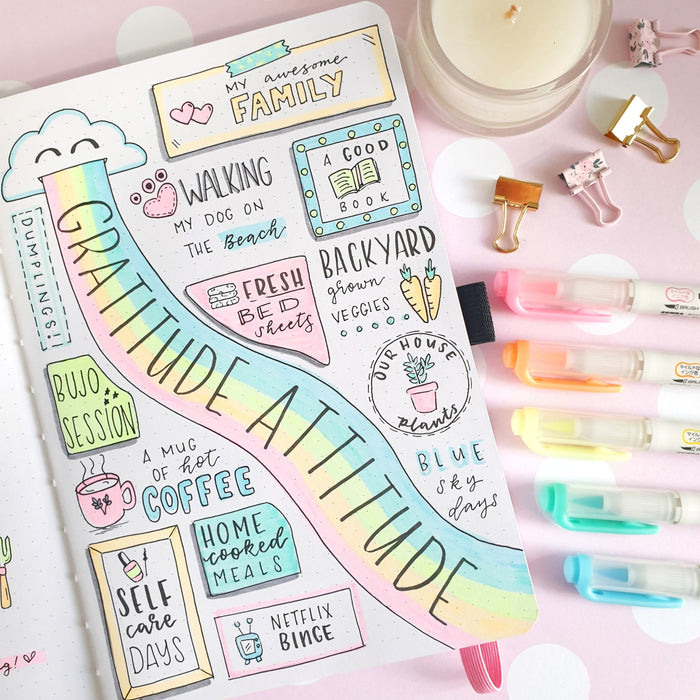 MY awesome
FAMILY
WALKING
MY DOG ON
THE Beach
A GOOD
BOOK
DUMPLINGS!
GRATITUDE ATTITUDE
FRESH
BED
sheets
BACKYARD
grown
VEGGIES
OUR HOUSE
plants
BUJO
SESSION
A MUG
OF hot
COFFEE
BLUE
sky
days
HOME
cooked
MEALS
SELF
care
DAYS
NETFLIX
BINGE